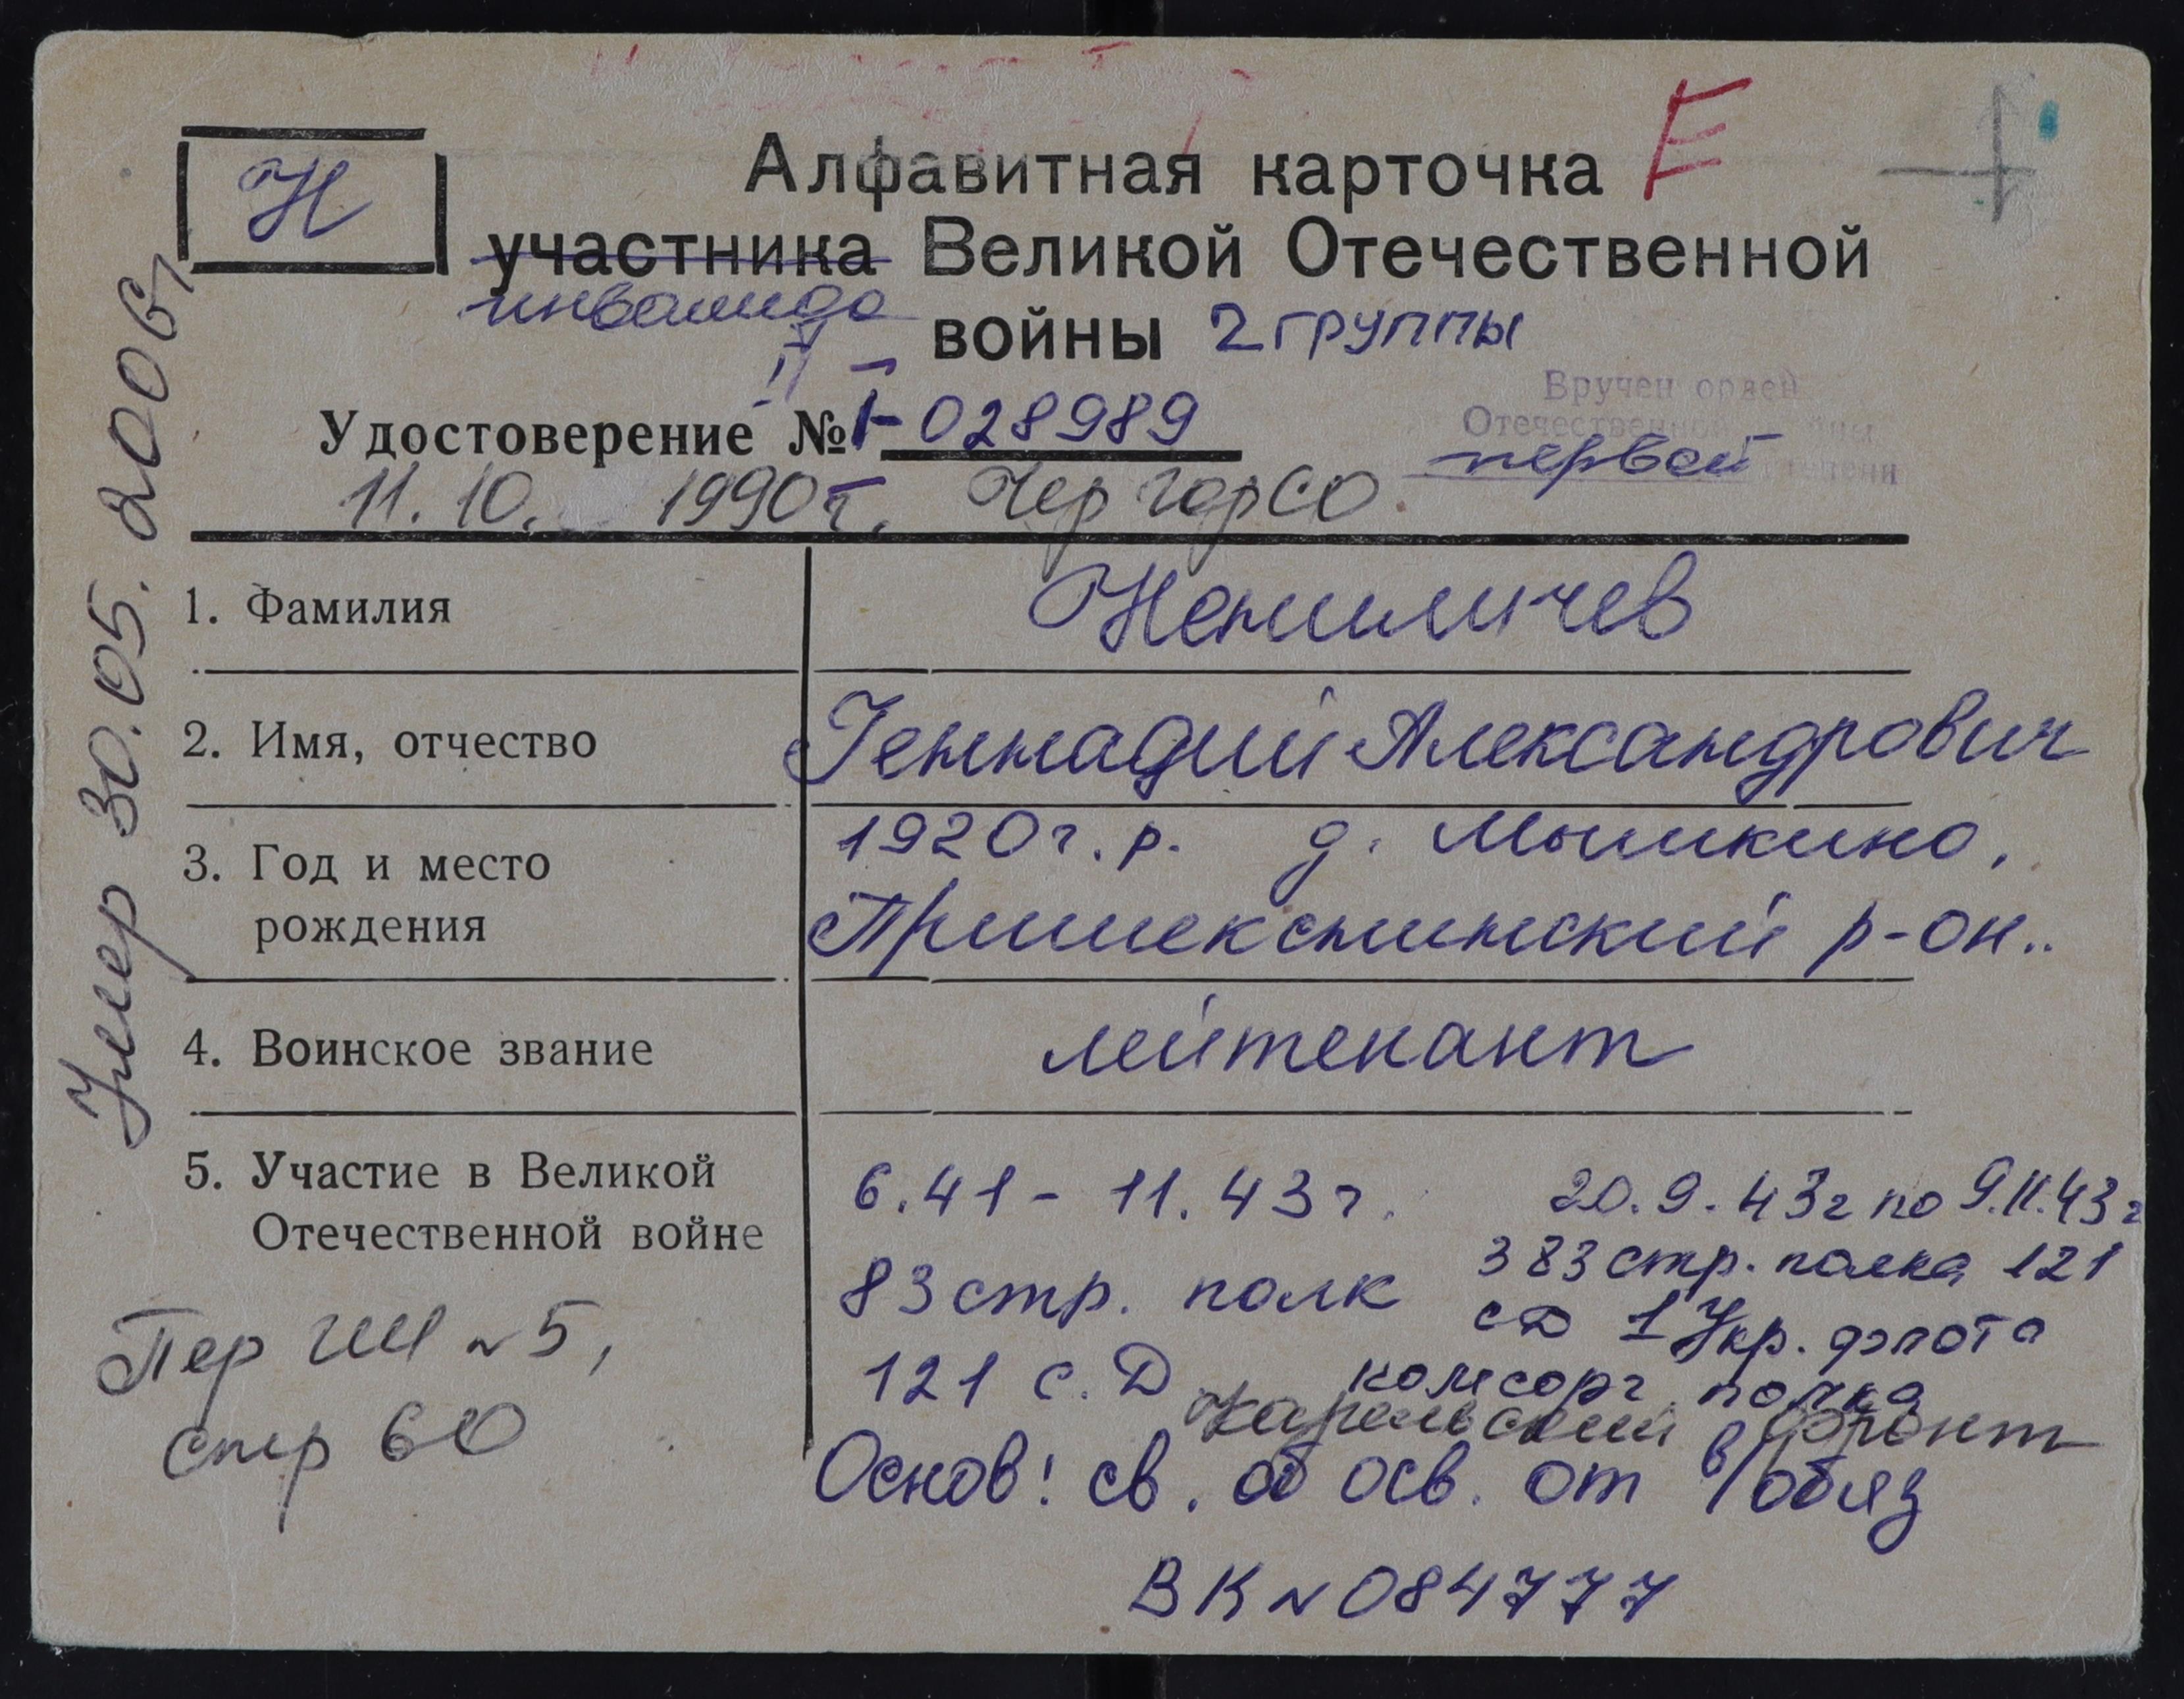 Н
Алфавитная карточка Е
участника Великой Отечественной
инвалида
войны 2 группы
Вручен орден
Отечественной войны
первой степени
Удостоверение № I-028989
11.10. 1990 г. Чер гор СО
1. Фамилия
Непиличев
2. Имя, отчество
Геннадий Александрович
3. Год и место рождения
1920 г.р. д. Мышкино,
Пришекснинский р-он..
4. Воинское звание
лейтенант
5. Участие в Великой
Отечественной войне
6.41 - 11.43 г.
83 стр. полк
121 с. Д
20.9.43г по 9.11.43г
383 стр. полка 121
сд 1 Укр. фронта
комсорг полка
Карельский фронт
Основ! св. об осв. от в/обяз
ВК № 084777
Пер №5,
стр 60
Умер 30.05.2006г